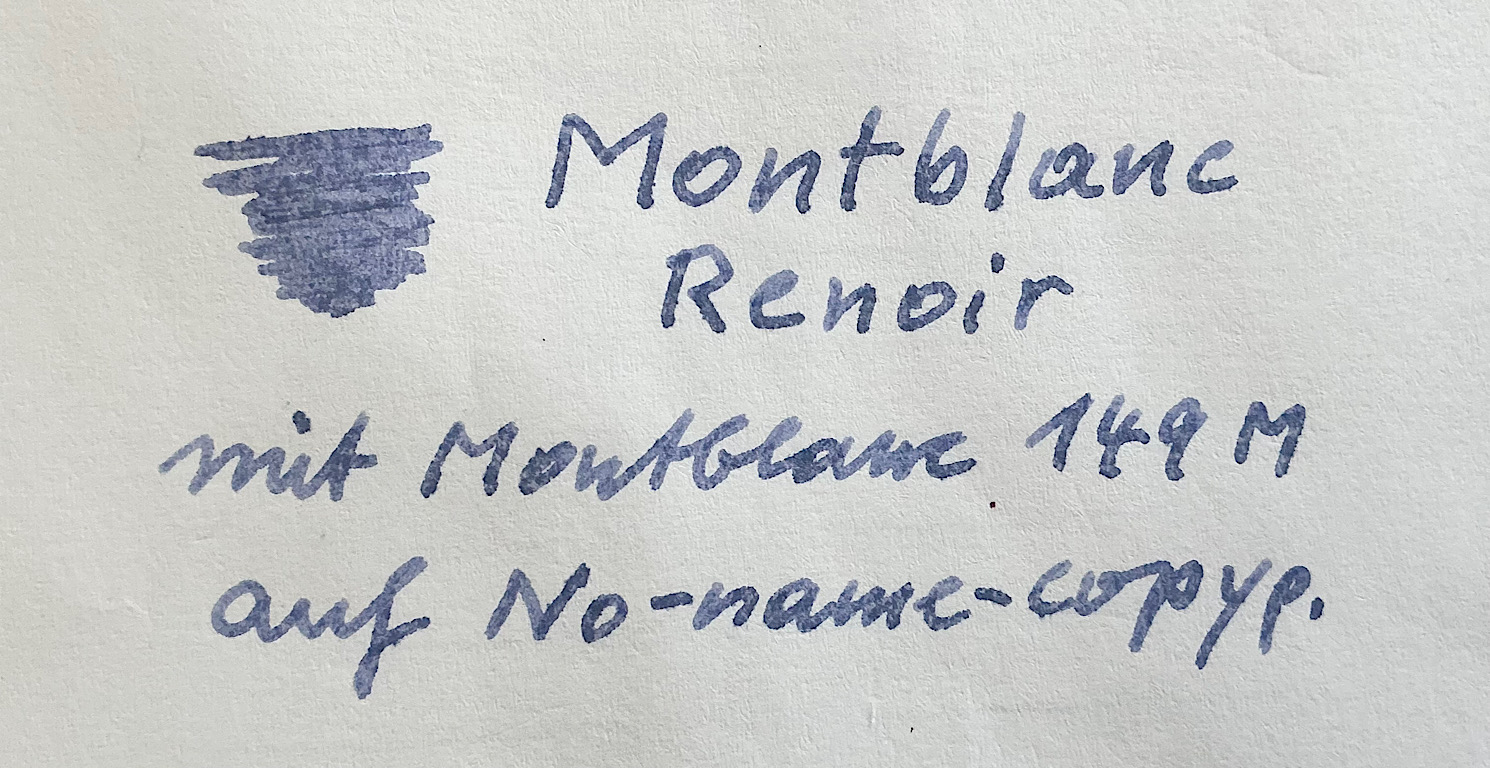 Montblanc
Renoir
mit Montblanc 149 M
auf No-name-copyp.